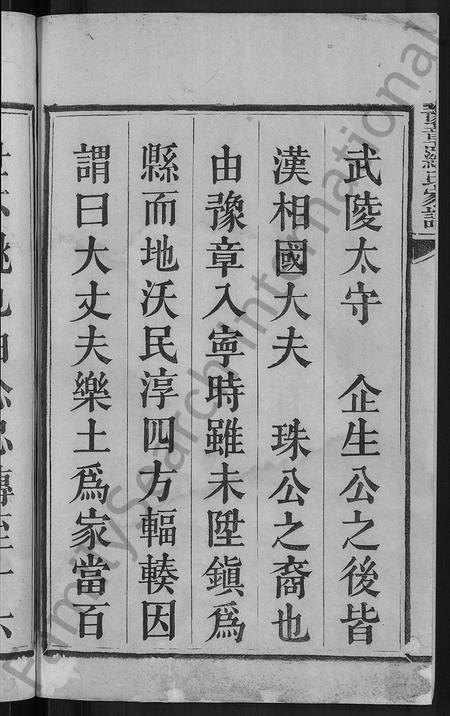 豫章羅氏家譜
武陵太守 企生公之後皆
漢相國大夫 珠公之裔也
由豫章入寧時雖未陞鎮為
縣而地沃民淳四方輻輳因
謂曰大丈夫樂土為家當百
FamilySearch International